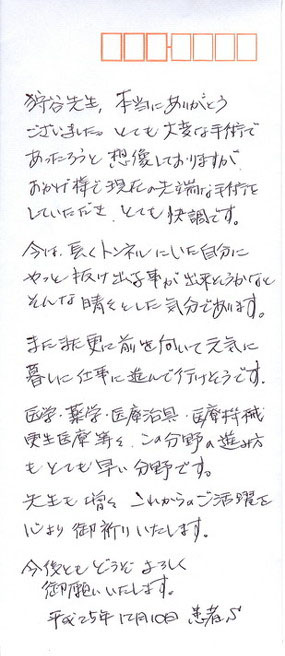 狩谷先生, 本当にありがとう
ございました。とても大変な手術で
あったろうと想像しておりますが
おかげ様で現在の先端な手術を
していただき、とても快調です。
今は、長くトンネルにいた自分に
やっと抜け出る事が出来そうかなと
そんな晴々とした気分であります。
まだまだ更に前を向いて元気に
暮しに仕事に進んで行けそうです.
医学・薬学・医療治具・医療機械
更生医療等々、この分野の進み方
もとても早い分野です。
先生も増々これからのご活躍を
心より御祈りいたします。
今後ともどうぞよろしく
御願いいたします。
平成25年12月10日 患者S